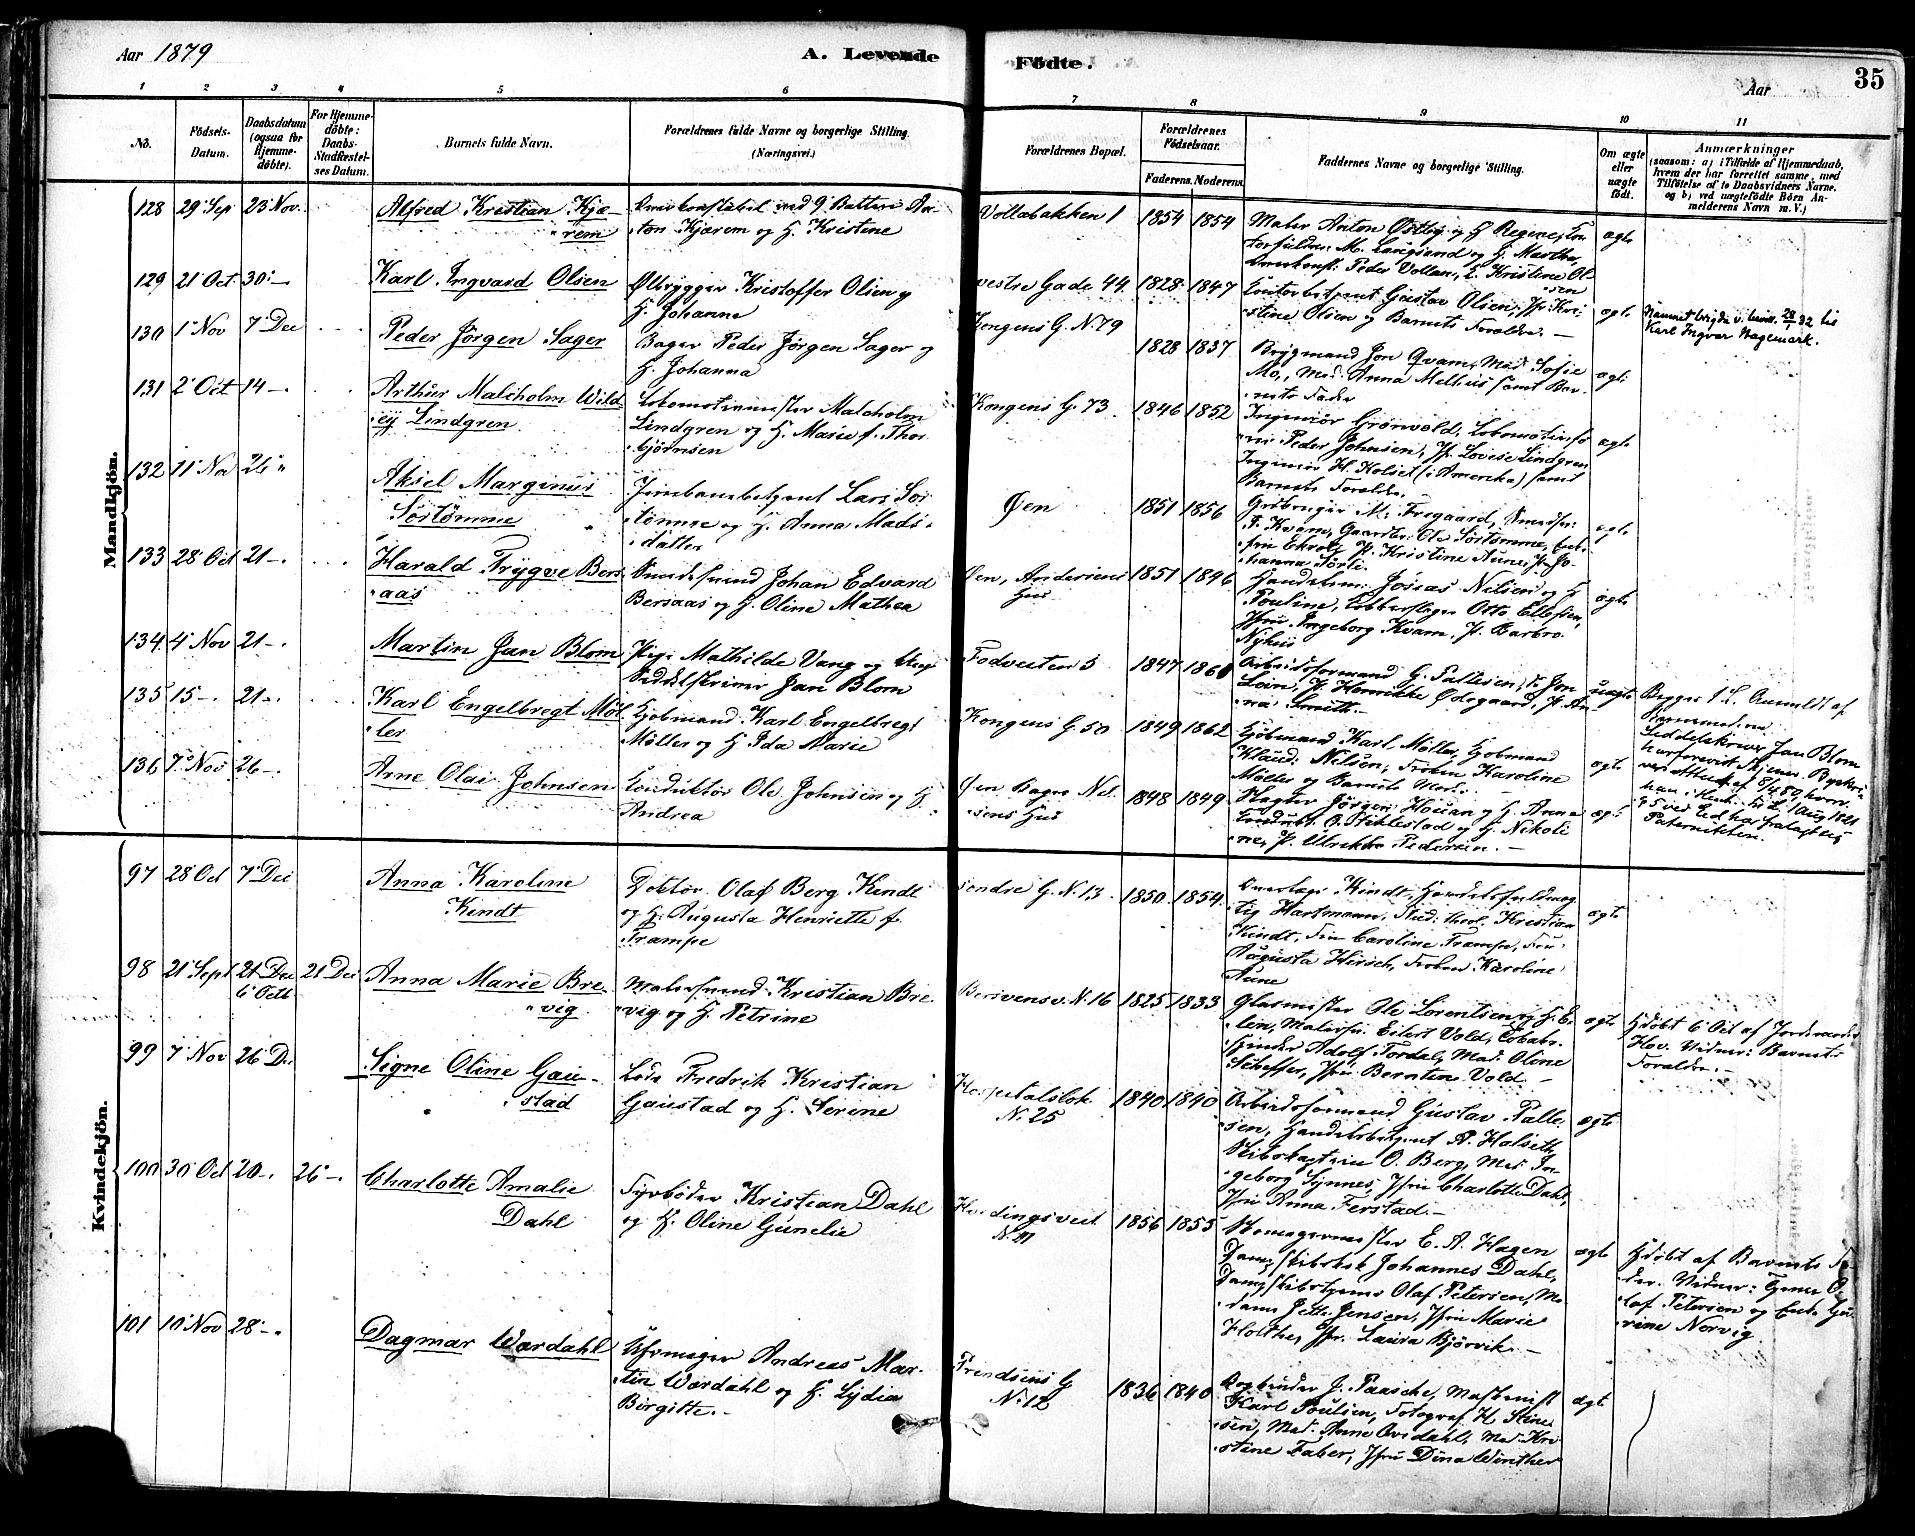 Aar 1879
A. Levende
Födte.
Aar
35
1 2 3 4 5 6 7 8 9 10 11
No.
Födsels-
Datum.
Daabsdatum
(ogsaa for
Hjemme-
döbte).
For Hjemme-
döbte:
Daabs-
Stadfæstel-
ses Datum.
Barnets fulde Navn.
Forældrenes fulde Navne og borgerlige Stilling.
(Næringsvei.)
Forældrenes Bopæl.
Forældrenes
Födselsaar.
Faderens. Moderens.
Faddernes Navne og borgerlige Stilling.
Om ægte
eller
uægte
födt.
Anmærkninger
(saasom: a) i Tilfælde af Hjemmedaab,
hvem der har forrettet samme, med
Tilföielse af to Daabsvidners Navne,
og b) ved uægtefödte Börn An-
melderens Navn m. V.)
Mandkjön.
128 29 Sep 23 Nov.
Alfred Kristian Kjæ-
rem
ved 9 Batteri An-
ton Kjærem og H. Kristine
Vollabakken 1
1854 1854
Maler Anton Östby og H. Regene,
M. Langsand og H. Martha,
Peder Vollan, Kristine Ol-
sen
ægte
129 21 Oct 30 -
Karl Ingvard Olsen
Ølbrygger Kristoffer Olsen og
H. Johanna
vestre Gade 44.
1828 1847
Contorbetjent Gustav Olsen, Jfr Kri-
stine Olsen og Barnets Foraldre. -
ægte
Navnet 28/1 32 til
Karl Ingvar Hagemark.
130 1 Nov 7 Dec
Peder Jörgen Sager
Bager Peder Jörgen Sager og
H. Johanna
Kongens G. N. 79
1828 1837
Brygmand Jon Qvam, Mad. Sofie
Mo, Mad. Anna Melhus samt Bar-
nets Fader
ægte
131 2 Oct 14 -
Arthur Malcholm Wild
ey Lindgren
Lokomotivmester Malcholm
Lindgren og H. Marie f. Thor
bjørnsen
Kongens G. 73
1846 1852
Ingeniör Grönvold, Lokomotivfö
Peder Johnsen, Jfr Lovise Lindgren
Ingeniör H. Holset (i Amerika) samt
Barnets Foraldre.
ægte
132 11 Nov 26 "
Aksel Marginus
Sørtømme
Jernbanebetjent Lars Sør-
tømme og H. Anna Mads-
datter
Øen
1851 1856
M. Fregaard, Smedsv.
F. Kvam, Gaardbr. Ole Sørtømme,
Ekroll, P. Kristine Aune, P. Jo-
hanna Sørli
ægte
133 28 Oct 21 -
Harald Trygve Bers
aas
Smedesvend Johan Edvard
Bersaas og H. Oline Mathea
Øen, Andersens
Hus
1851 1846
Handelsm: Josias Nilsen og H.
Pouline, Kobberslager Otto Ellefsen,
Jfru Ingeborg Kvam, P. Barbro
Nyhus
ægte
134 4 Nov 21 -
Martin Jan Blom
Pige Mathilde Vang og Ung
Jan Blom
Fodvesten 5
1847 1860
Arbeidsformand G. Pallesen, Jon
Loin, P. Henrikke Ødegaard, P. An-
na Smith. -
uægte
Begges 1 L. Anmeldt af
Barnemoderen
Seddelskriver Jan Blom
har
8/4 80, hvor
1 Aug 1821
§ 5 ved Ed har fralagt sig
Paterniteten.
135 15 - 21 -
Karl Engelbregt Möl
ler
Kjøbmand Karl Engelbregt
Möller og H. Ida Marie
Kongens G. 50
1849 1862
Kjöbmand Karl Möller, Kjöbmand
Klaud: Nilsen, Frøken Karoline
Möller og Barnets Mor. -
ægte
136 7 Nov 26 -
Arne Olai Johnsen
Conduktör Ole Johnsen og H.
Andrea
Øen Bager Nil-
sens Hus
1848 1849
Slagter Jörgen Houan og H. Anna
Conduktör O. Stiklestad og H. Nikoli
ne, P. Ulrikka Pedersen. -
ægte
Kvindekjön.
97 28 Oct 7 Dec
Anna Karoline
Kindt
Doktör Olaf Berg Kindt
og H. Augusta Henriette f.
Trampe
Söndre G. N. 13
1850 1854
Overlæge Kindt, Handelsfuldmæg
tig Hartmann, Stud: theol. Kristian
Kindt, Frk Caroline Trampe, Fru
Augusta Hirsch, Frøken Karoline
Aune
ægte
98 21 Sept 21 Dec 21 Dec
6 Octb
Anna Marie Bre-
vig
Malersvend Kristian Bre
vig og H. Petrine
N. 16
1825 1833
Glasmester Ole Lorentsen og H. E-
len, Malersv: Eilert Vold, Tobaks-
spinder Adolf Tordal, Mad. Oline
Scheffer, Jfru Berntine Vold. -
ægte
Hjdöbt 6 Oct af Jordemoder
Hov. Vidner: Barnets
Foraldre. -
99 7 Nov 26 De
Signe Oline Gau-
stad
Lods Fredrik Kristian
Gaustad og H. Serine
Hospitalslök.
N. 25
1840 1840
Arbeidsformand Gustav Palle-
sen, Handelsbetjent A. Halseth,
Skibskaptein O. Berg, Mad. In-
geborg Synnes, Jfru Charlotte Dahl,
Jfru Anna Ferstad. -
ægte
100 30 Oct 20 - 26 -
Charlotte Amalie
Dahl
Fyrböder Kristian Dahl
og H. Oline Gunelie
1856 1855
E. A. Hagen
Dampskibskok Johannes Dahl,
Olaf Petersen, Ma-
dame Jette Jensen, Jfru Marie
Holthe, Jfr. Laura Bjørvik. -
ægte
Hjdöbt af Barnets Fa-
der. Vidner: O-
laf Petersen og Enke Gu-
rine Norvig
101 10 Nov 28 -
Dagmar Wærdahl
Uhrmager Andreas Mar-
tin Wærdahl og H. Lydia
Birgitte. -
G
N. 12
1836 1840
Bogbinder J. Paasche, Maskinist
Karl Poulsen, Fotograf H. Stine-
sen, Mad. Anne Ovidahl, Mad. Kri
stine Faber, Jfru Dina Winther
ægt